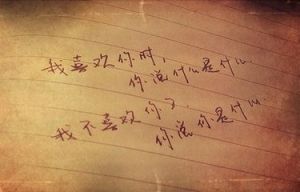 我喜欢你时，
你说什么是什么.
我不喜欢你了.
你说你是什么